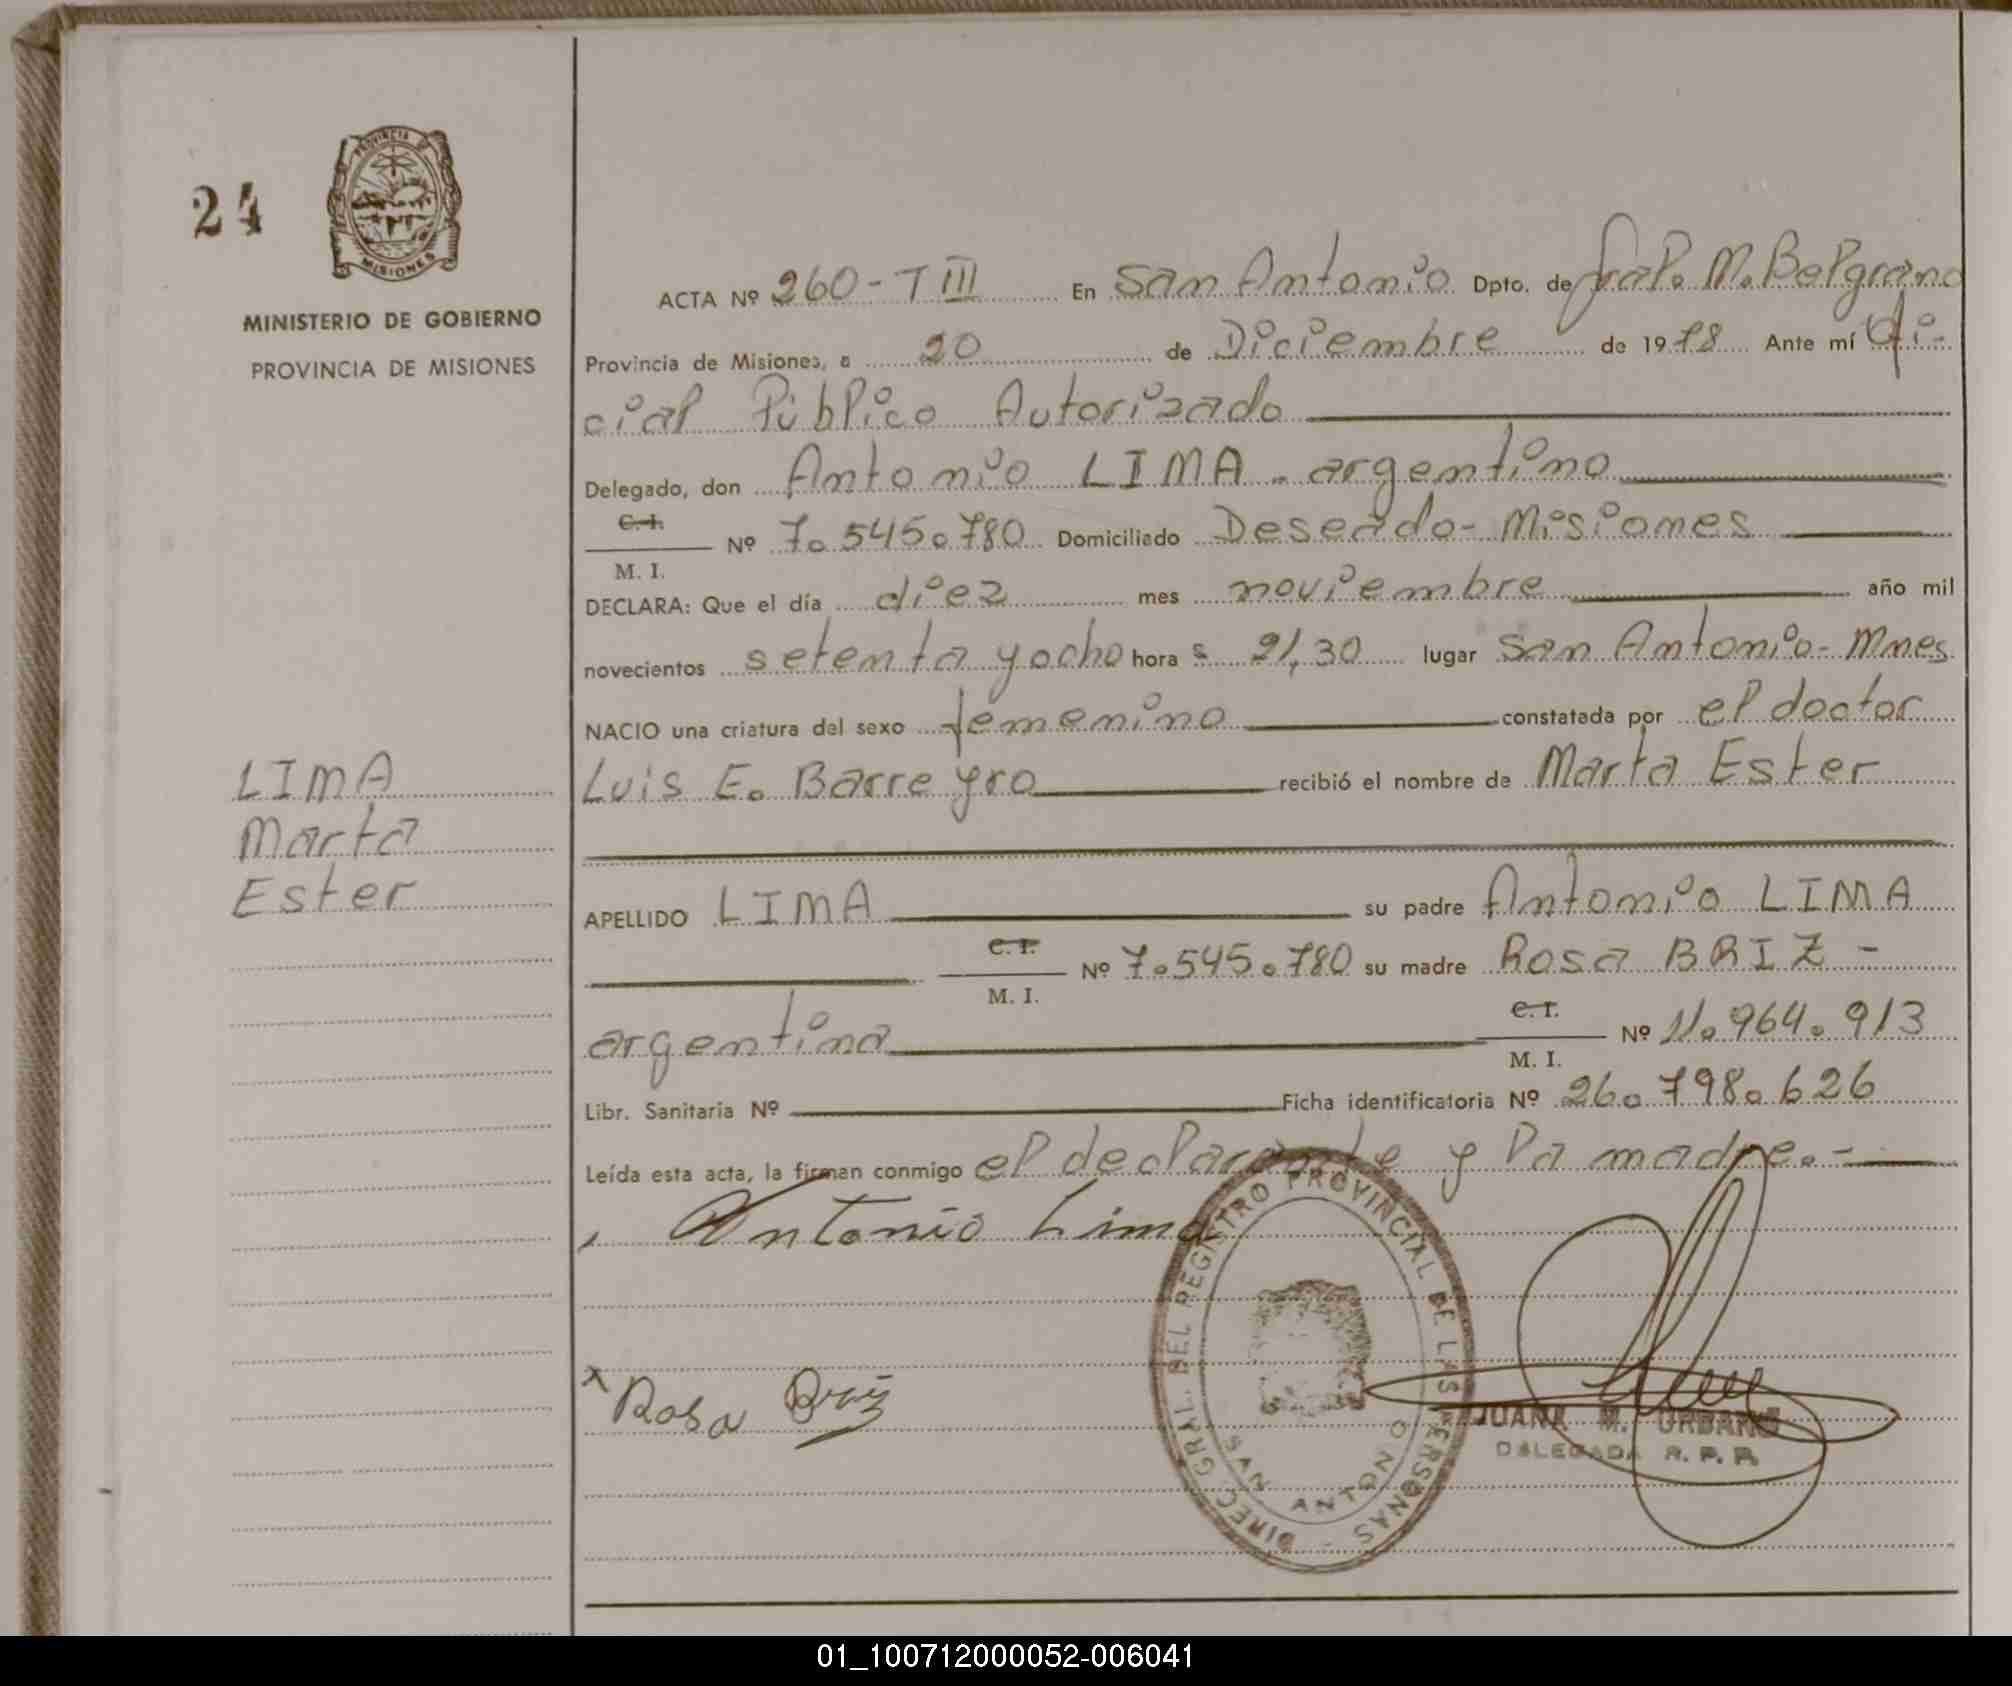 24
PROVINCIA DE
MISIONES
MINISTERIO DE GOBIERNO
PROVINCIA DE MISIONES
LIMA
Marta
Ester
ACTA Nº 260-T III En San Antonio Dpto. de Gral. M. Belgrano
Provincia de Misiones, a 20 de Diciembre de 1978 Ante mí Ofi-
cial Público Autorizado
Delegado, don Antonio LIMA - argentino
C. I.
M. I. Nº 7.545.780 Domiciliado Deseado - Misiones
DECLARA: Que el día diez mes noviembre año mil
novecientos setenta y ocho hora s 21,30 lugar San Antonio - Mnes
NACIO una criatura del sexo femenino constatada por el doctor
Luis E. Barreyro recibió el nombre de Marta Ester
APELLIDO LIMA su padre Antonio LIMA
C. I.
M. I. Nº 7.545.780 su madre Rosa BRIZ -
argentina C. I.
M. I. Nº 11.964.913
Libr. Sanitaria Nº Ficha identificatoria Nº 26.798.626
Leída esta acta, la firman conmigo el declarante y la madre.-
Antonio Lima
x Rosa Briz
DIREC. GRAL. DEL REGISTRO PROVINCIAL DE LAS PERSONAS
SAN ANTONIO
JUANA M. URBANO
DELEGADA R. P. P.
01_100712000052-006041